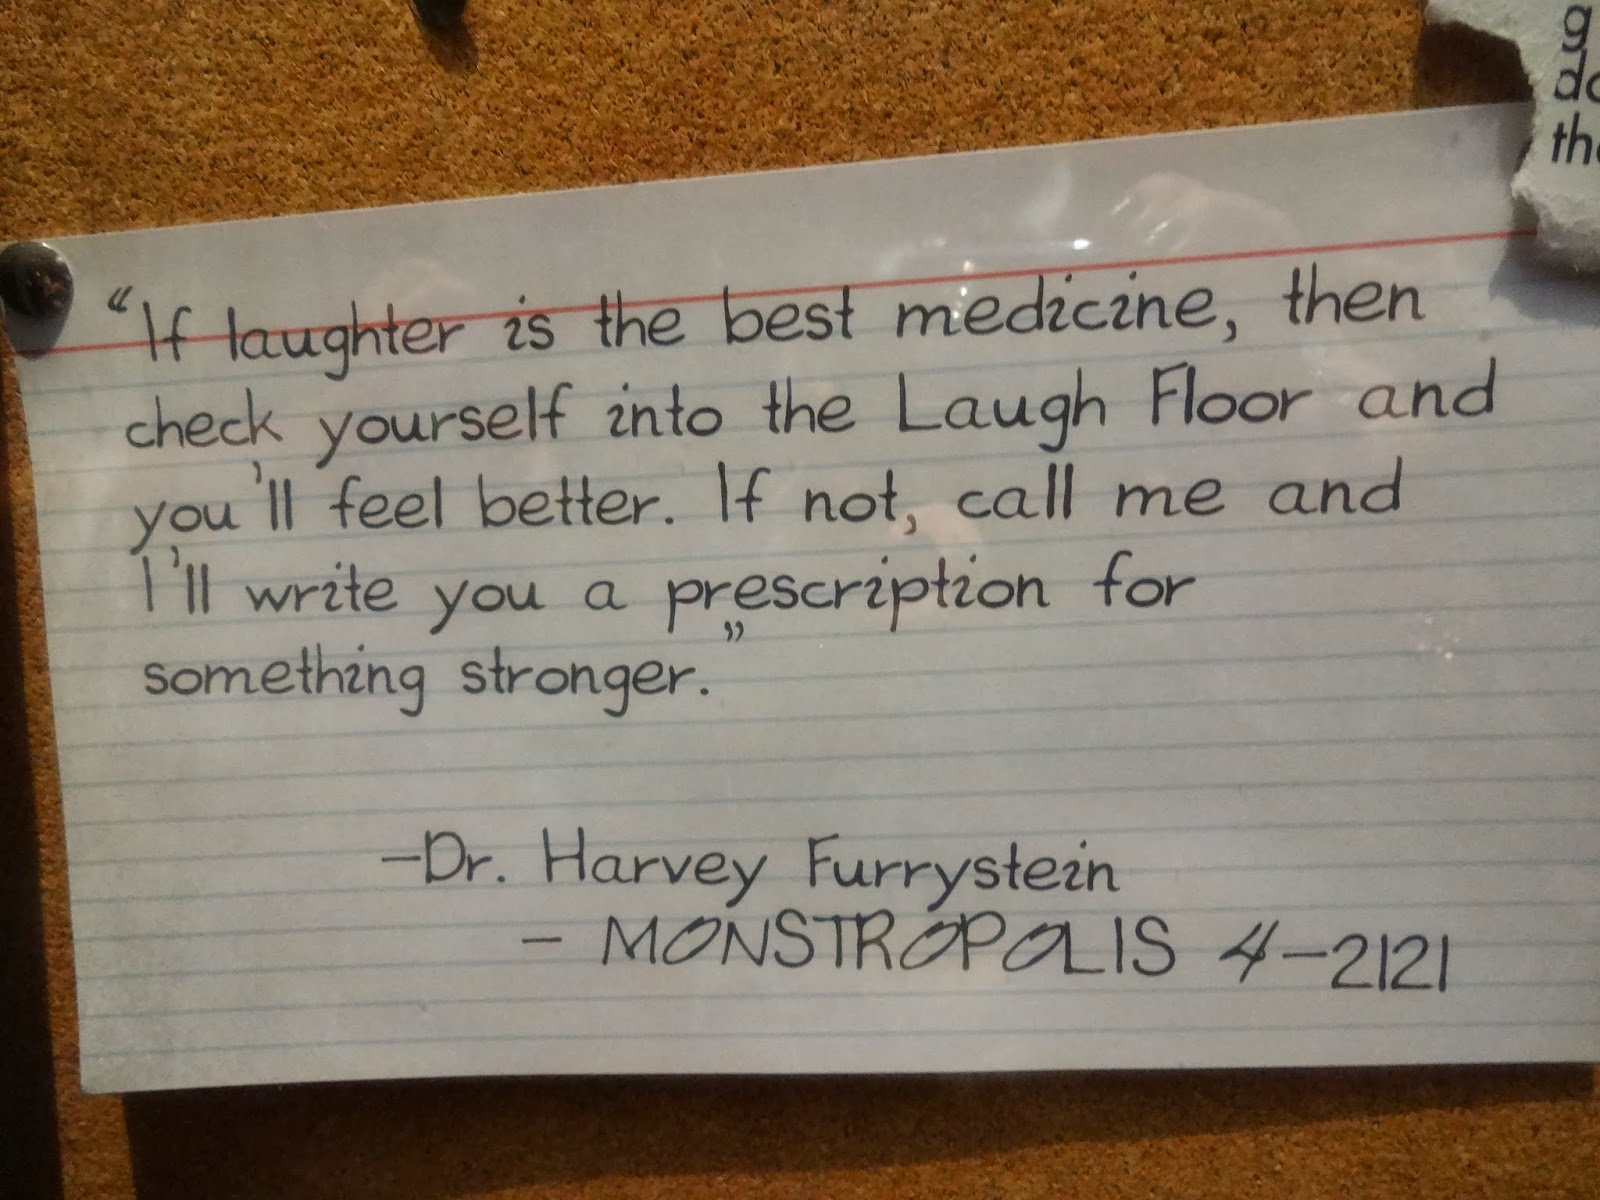 “If laughter is the best medicine, then
check yourself into the Laugh Floor and
you'll feel better. If not, call me and
I'll write you a prescription for
something stronger.”
-Dr. Harvey Furrystein
- MONSTROPOLIS 4-2121
g